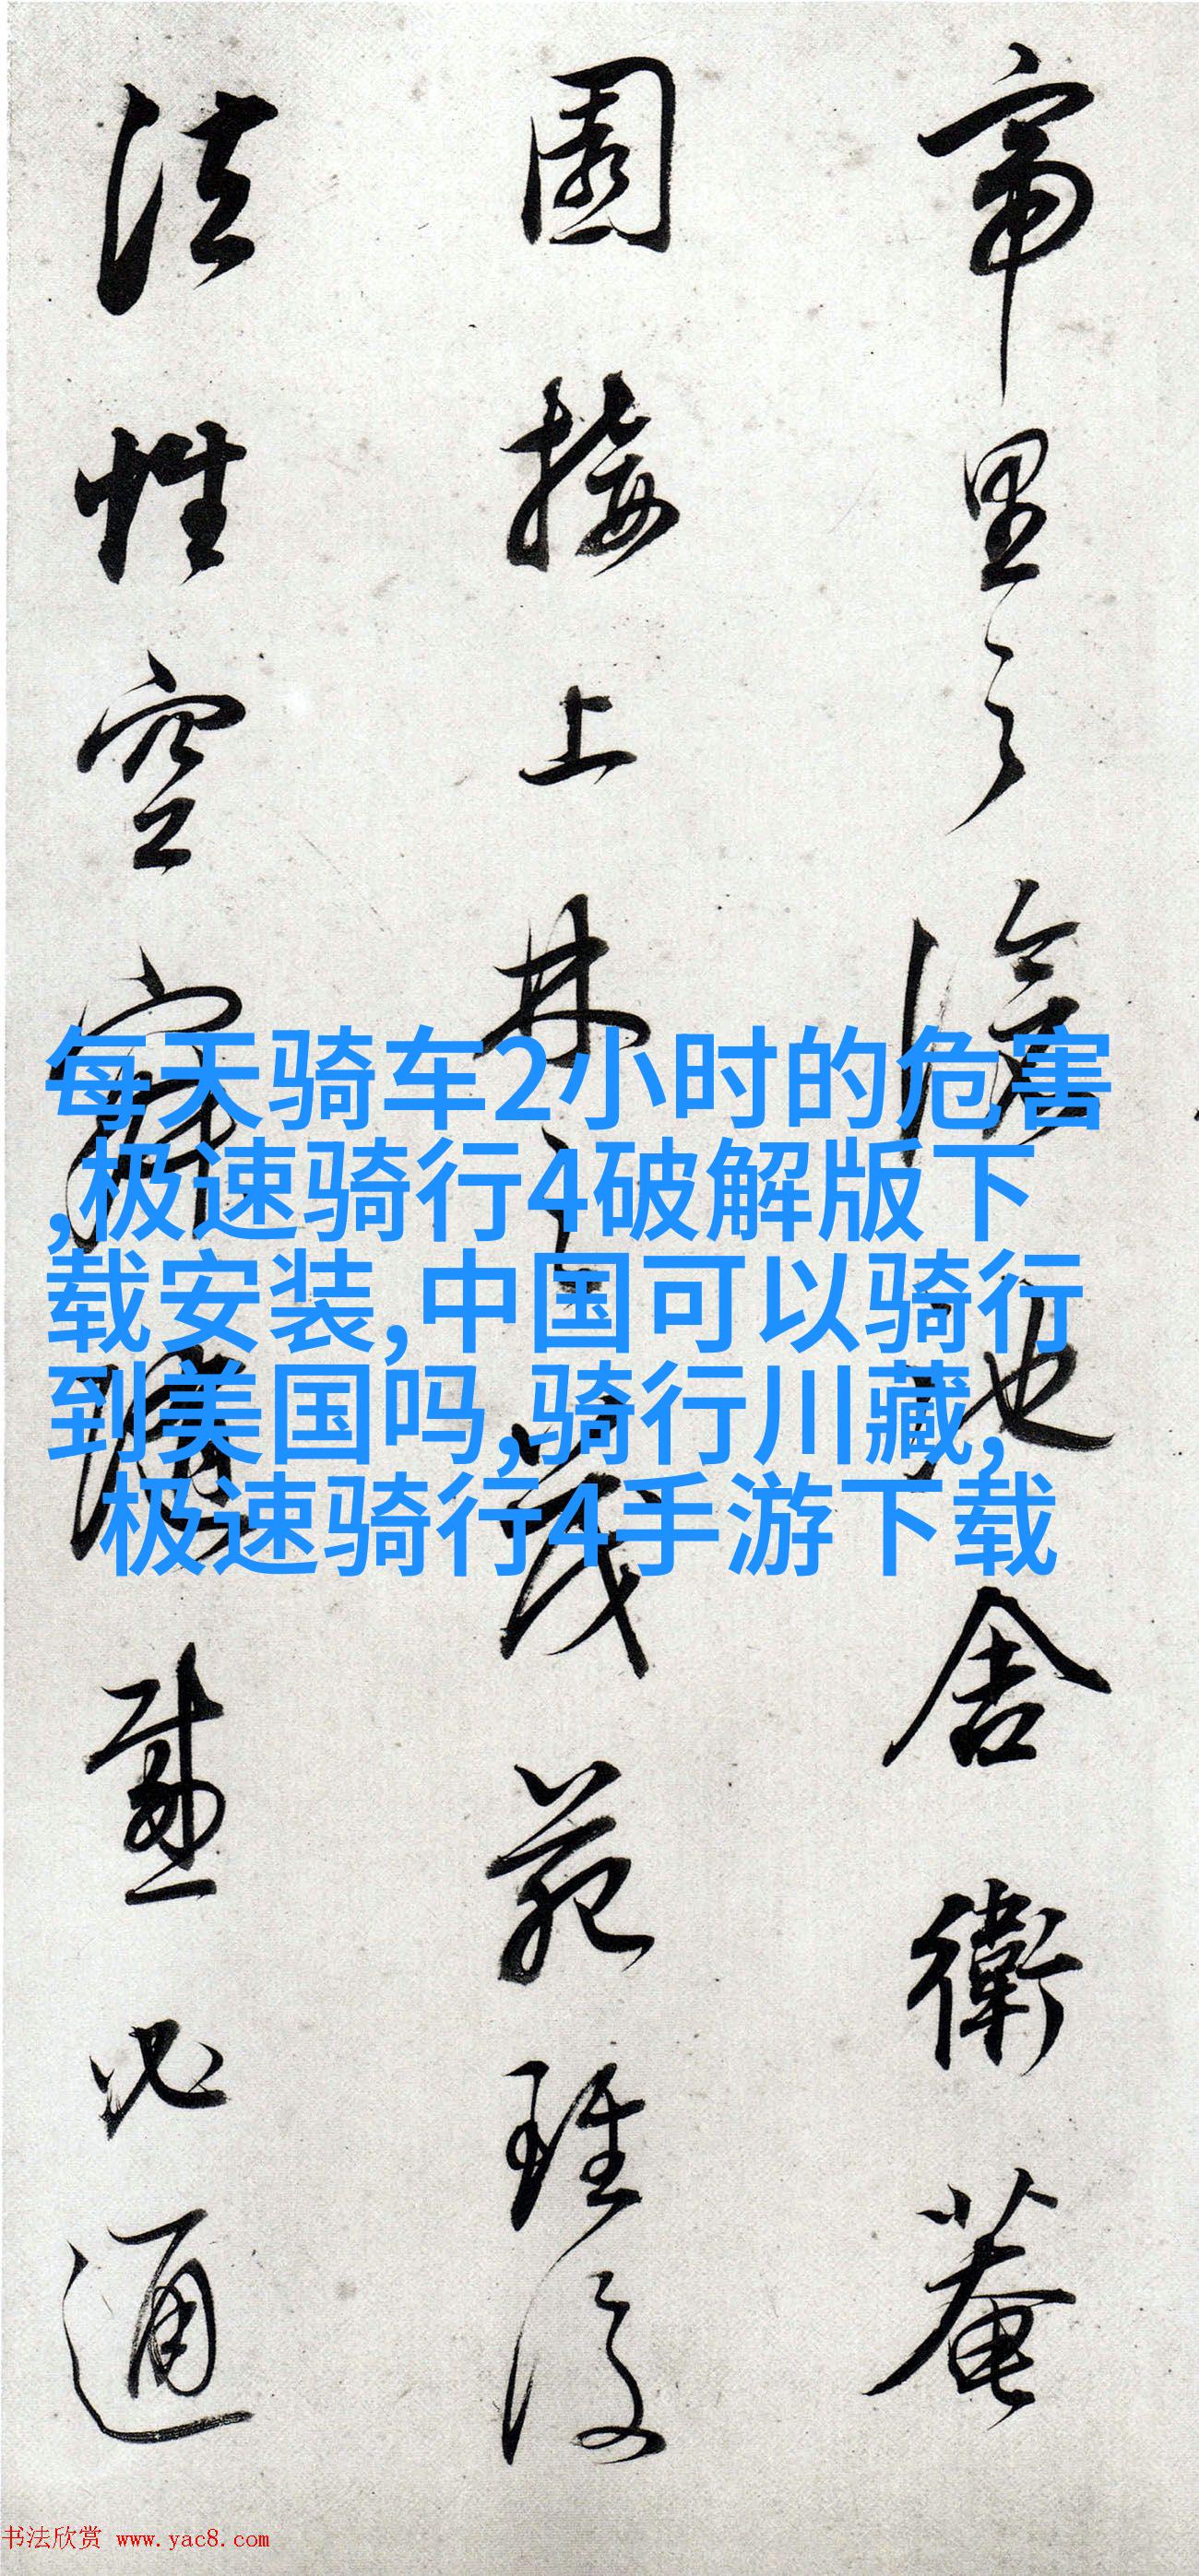 帝里之滄池也舍衛菴
園接上林之茂苑理復
法性空寂隨感必通
每天骑车2小时的危害
,极速骑行4破解版下
载安装,中国可以骑行
到美国吗,骑行川藏,
极速骑行4手游下载
书法欣赏 www.yac8.com